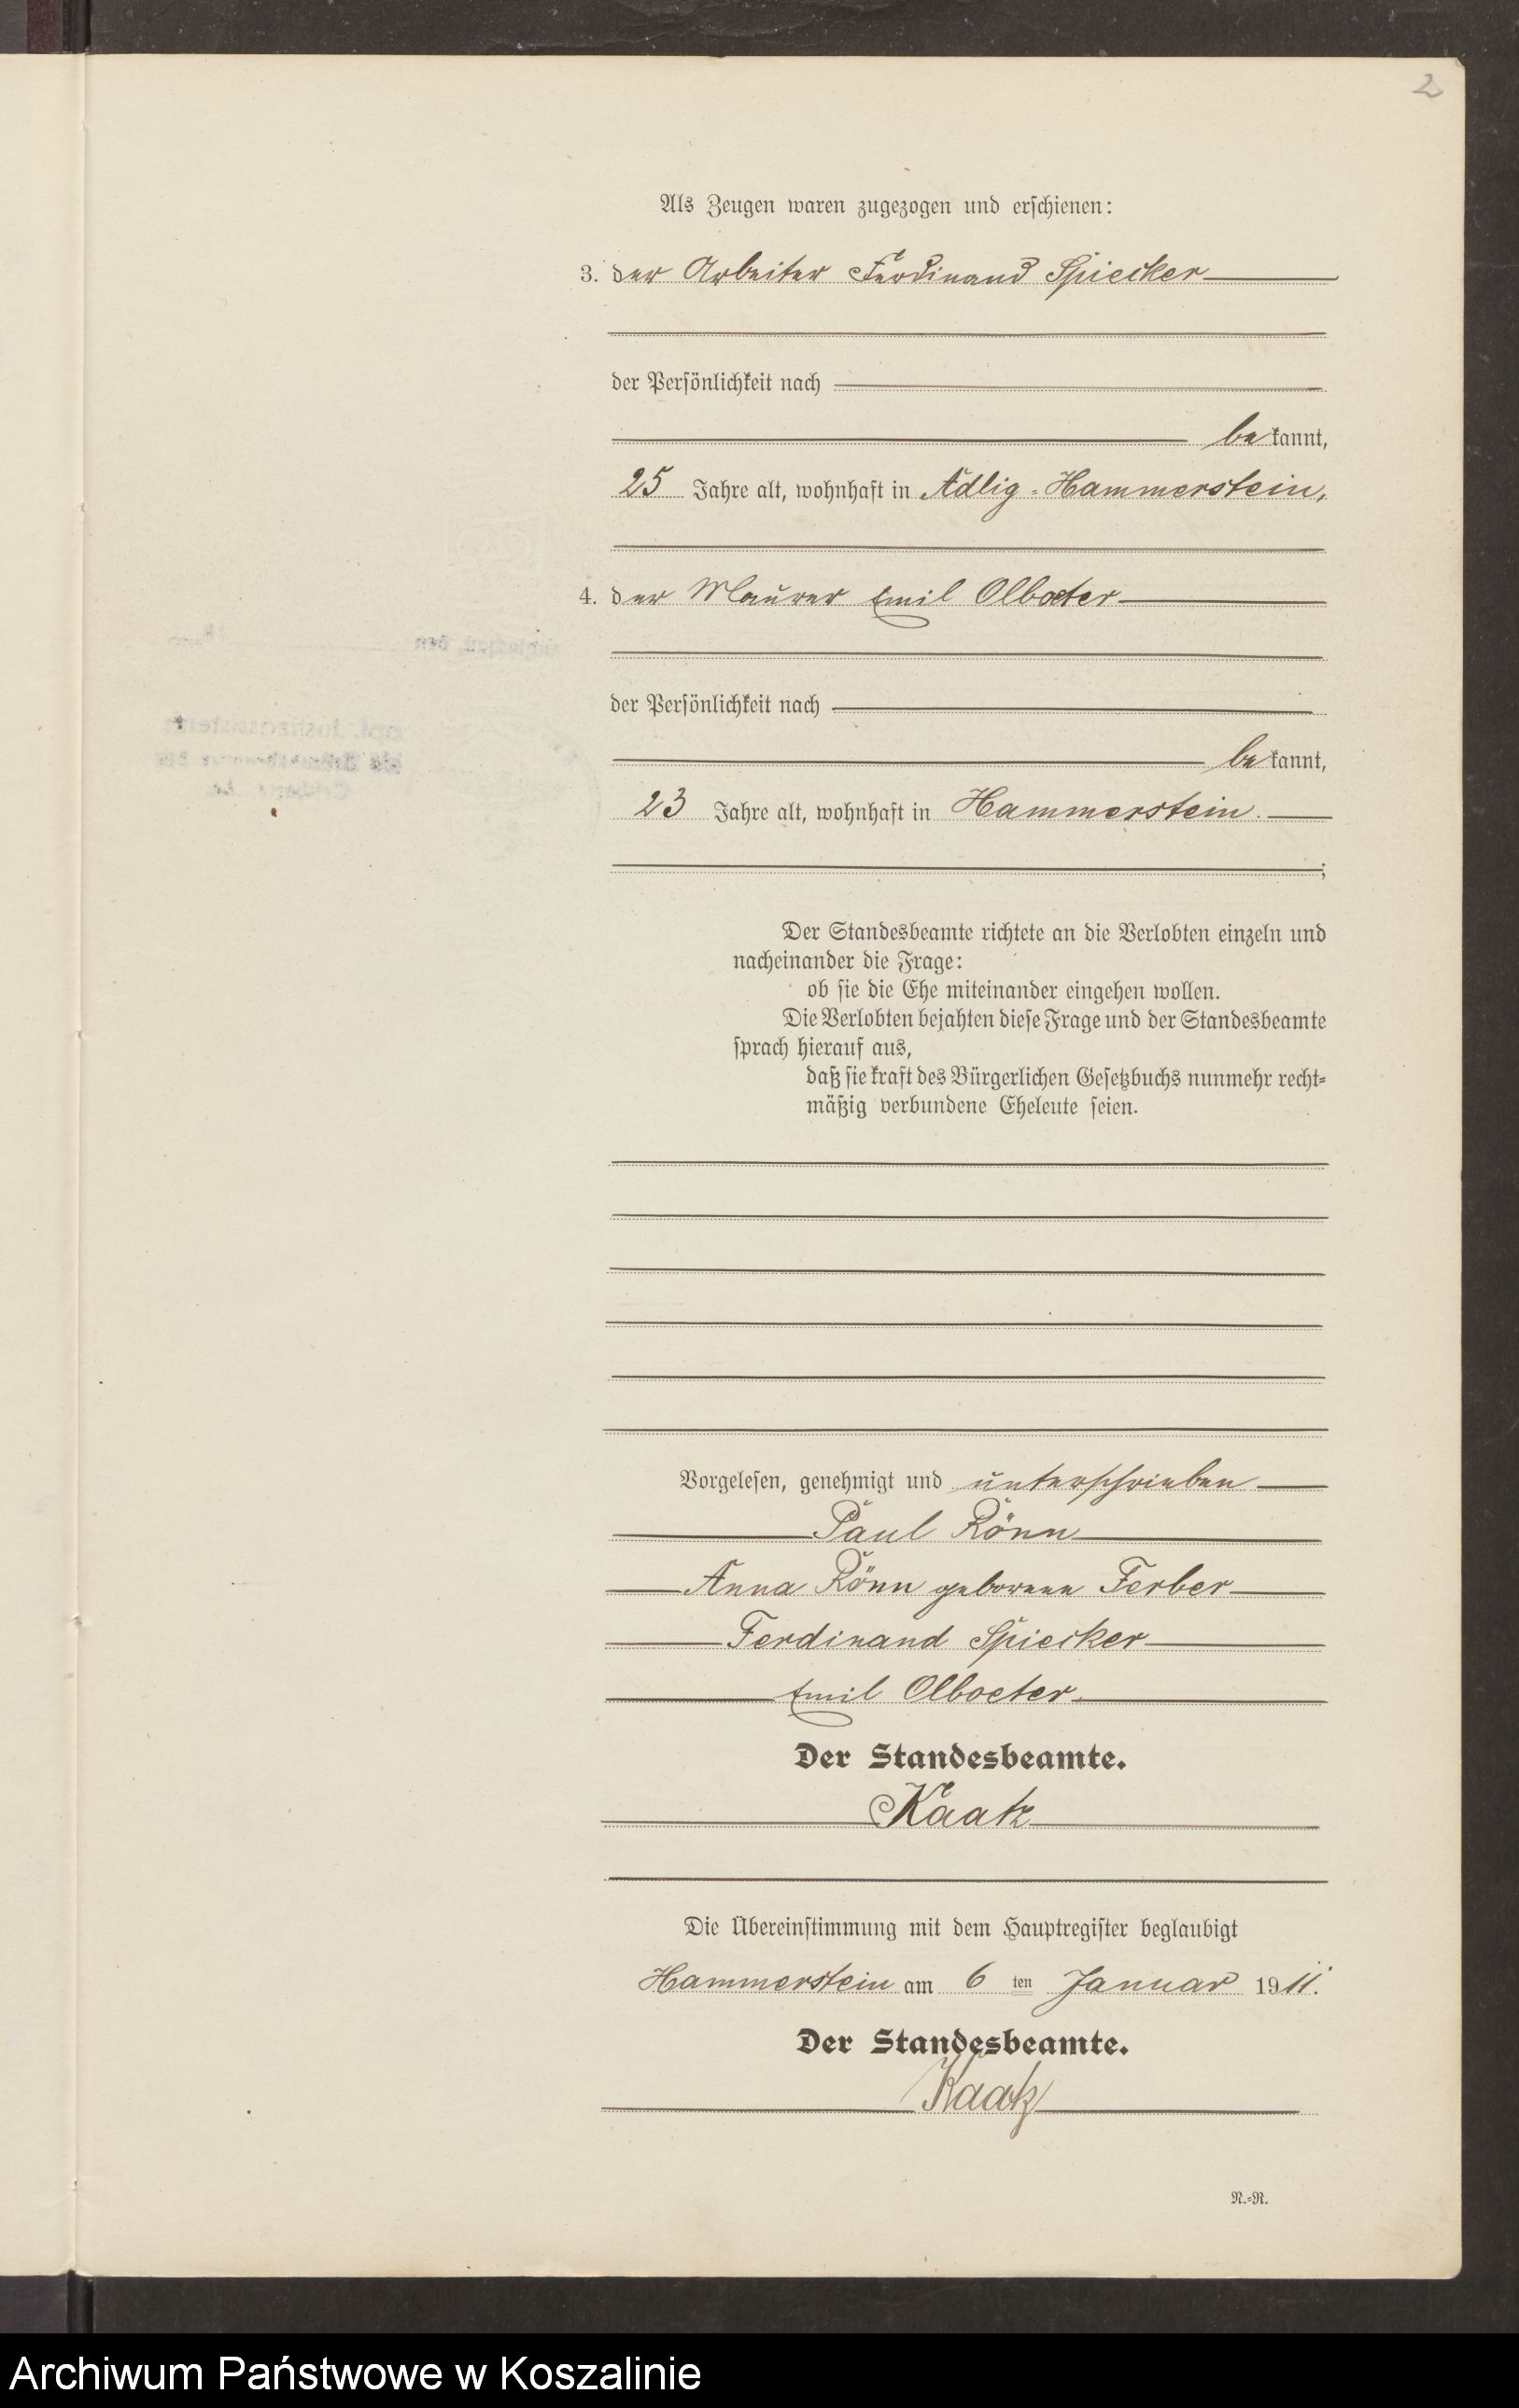 2
Als Zeugen waren zugezogen und erschienen:
3. der Arbeiter Ferdinand Spiecker
der Persönlichkeit nach
bekannt,
25 Jahre alt, wohnhaft in Adlig-Hammerstein,
4. der Maurer Emil Olboeter
der Persönlichkeit nach
bekannt,
23 Jahre alt, wohnhaft in Hammerstein.
;
Der Standesbeamte richtete an die Verlobten einzeln und
nacheinander die Frage:
ob sie die Ehe miteinander eingehen wollen.
Die Verlobten bejahten diese Frage und der Standesbeamte
sprach hierauf aus,
daß sie kraft des Bürgerlichen Gesetzbuchs nunmehr recht-
mäßig verbundene Eheleute seien.
Vorgelesen, genehmigt und unterschrieben
Paul Rönn
Anna Rönn geborene Ferber
Ferdinand Spiecker
Emil Olboeter
Der Standesbeamte.
Kaatz
Die Übereinstimmung mit dem Hauptregister beglaubigt
Hammerstein am 6ten Januar 1911.
Der Standesbeamte.
Kaatz
N.-R.
Archiwum Państwowe w Koszalinie